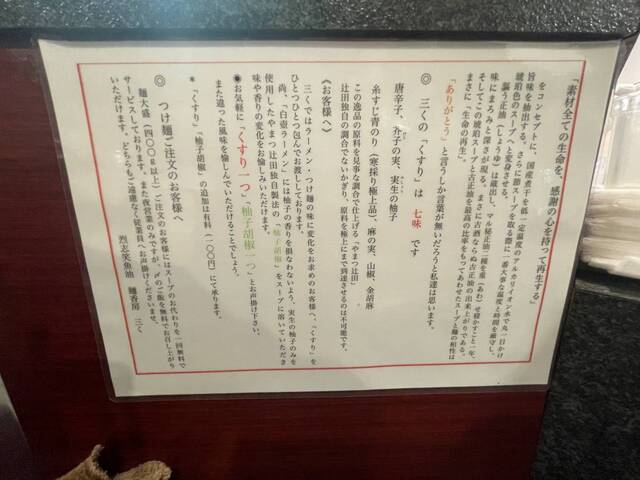 「素材全ての生命を、感謝の心を持って再生する」
をコンセプトに、国産煮干を低一定温度のアルカリイオン水で丸一日かけ
旨味を抽出する。さらに節スープを取る際に一番大事な温度と時間を厳守し、
琥珀色のスープへと変身させる。
醤う正油（しょうゆ）は蔵出し、マル秘正油二種を重（あわ）せ寝かすこと一年、
味にまろみと深さが現る。まさに古酒ならぬ古正油の出来上がりである。
そしてこの琥珀スープと古正油を最高の比率をもってあわせたスープと麺の相性は
まさに「生命の再生」。
「ありがとう」と言うしか言葉が無いだろうと私達は思います。
◎ 三くの「くすり」は 七味 です
唐辛子、芥子の実、実生の柚子
糸すじ青のり（寒採り極上品）、麻の実、山椒、金胡麻
この逸品の原料を見事な調合で仕上げる「やまつ辻田」
辻田独自の調合でないかぎり、原料を極上にまで到達させるのは不可能です。
《お客様へ》
三くではラーメン・つけ麺の味に変化をお求めのお客様へ、「くすり」を
ひとつひとつ包んでお渡ししております。
尚、「白壺ラーメン」には柚子の香りを損なわないよう、実生の柚子のみを
使用したやまつ辻田独自製法の「柚子胡椒」をスープに溶いていただき
味や香りの変化をお愉しみいただけます。
●お気軽に「くすり一つ」「柚子胡椒一つ」とお声掛け下さい。
また違った風味を愉しんでいただけることでしょう。
＊「くすり」「柚子胡椒」の追加は有料（一〇〇円）にて承ります。
◎ つけ麺ご注文のお客様へ
麺大盛（四〇〇g以上）ご注文のお客様にはスープのお代わりを一回無料で
サービスしております。また夜営業のみですが、〆のご飯を無料でお召し上がり
いただけます。どちらもご遠慮なく従業員へお声掛けくださいませ。
烈志笑魚油 麺香房 三く